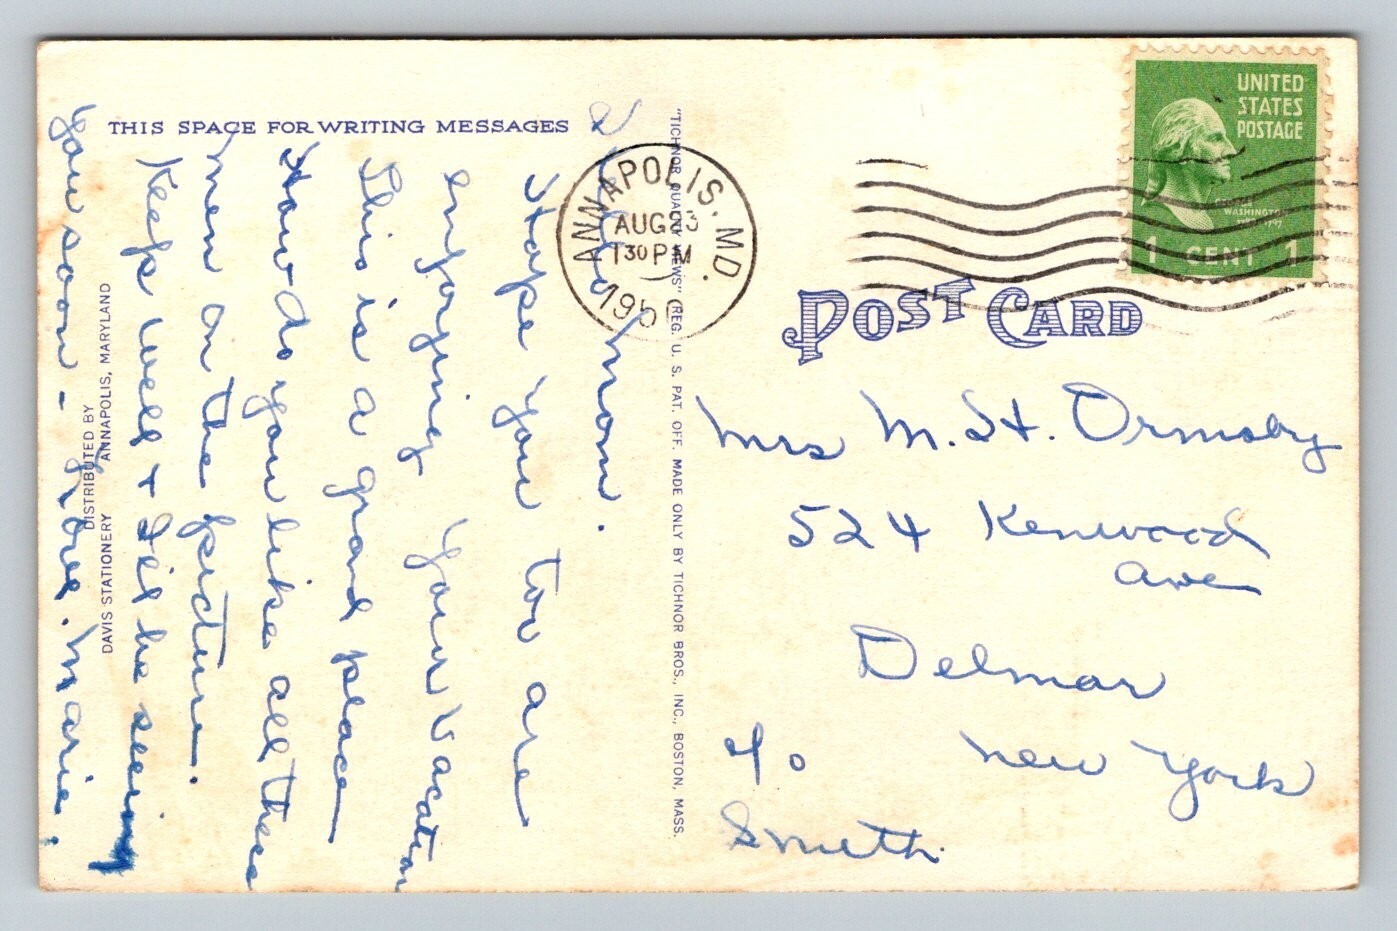 THIS SPACE FOR WRITING MESSAGES
Hello Mom.
Hope you too are
enjoying your vacation
This is a grand place
How do you like all these
men on the picture.
Keep well + I'll be seeing
you soon - Love. Marie.
DISTRIBUTED BY
DAVIS STATIONERY ANNAPOLIS, MARYLAND
"TICHNOR QUALITY VIEWS" REG. U. S. PAT. OFF. MADE ONLY BY TICHNOR BROS., INC., BOSTON, MASS.
ANNAPOLIS. MD.
AUG 23
130 PM
UNITED
STATES
POSTAGE
WASHINGTON
1 CENT 1
POST CARD
Mrs M. St. Ormsby
524 Kenwood
Ave
Delmar
New York
c/o
Smith.